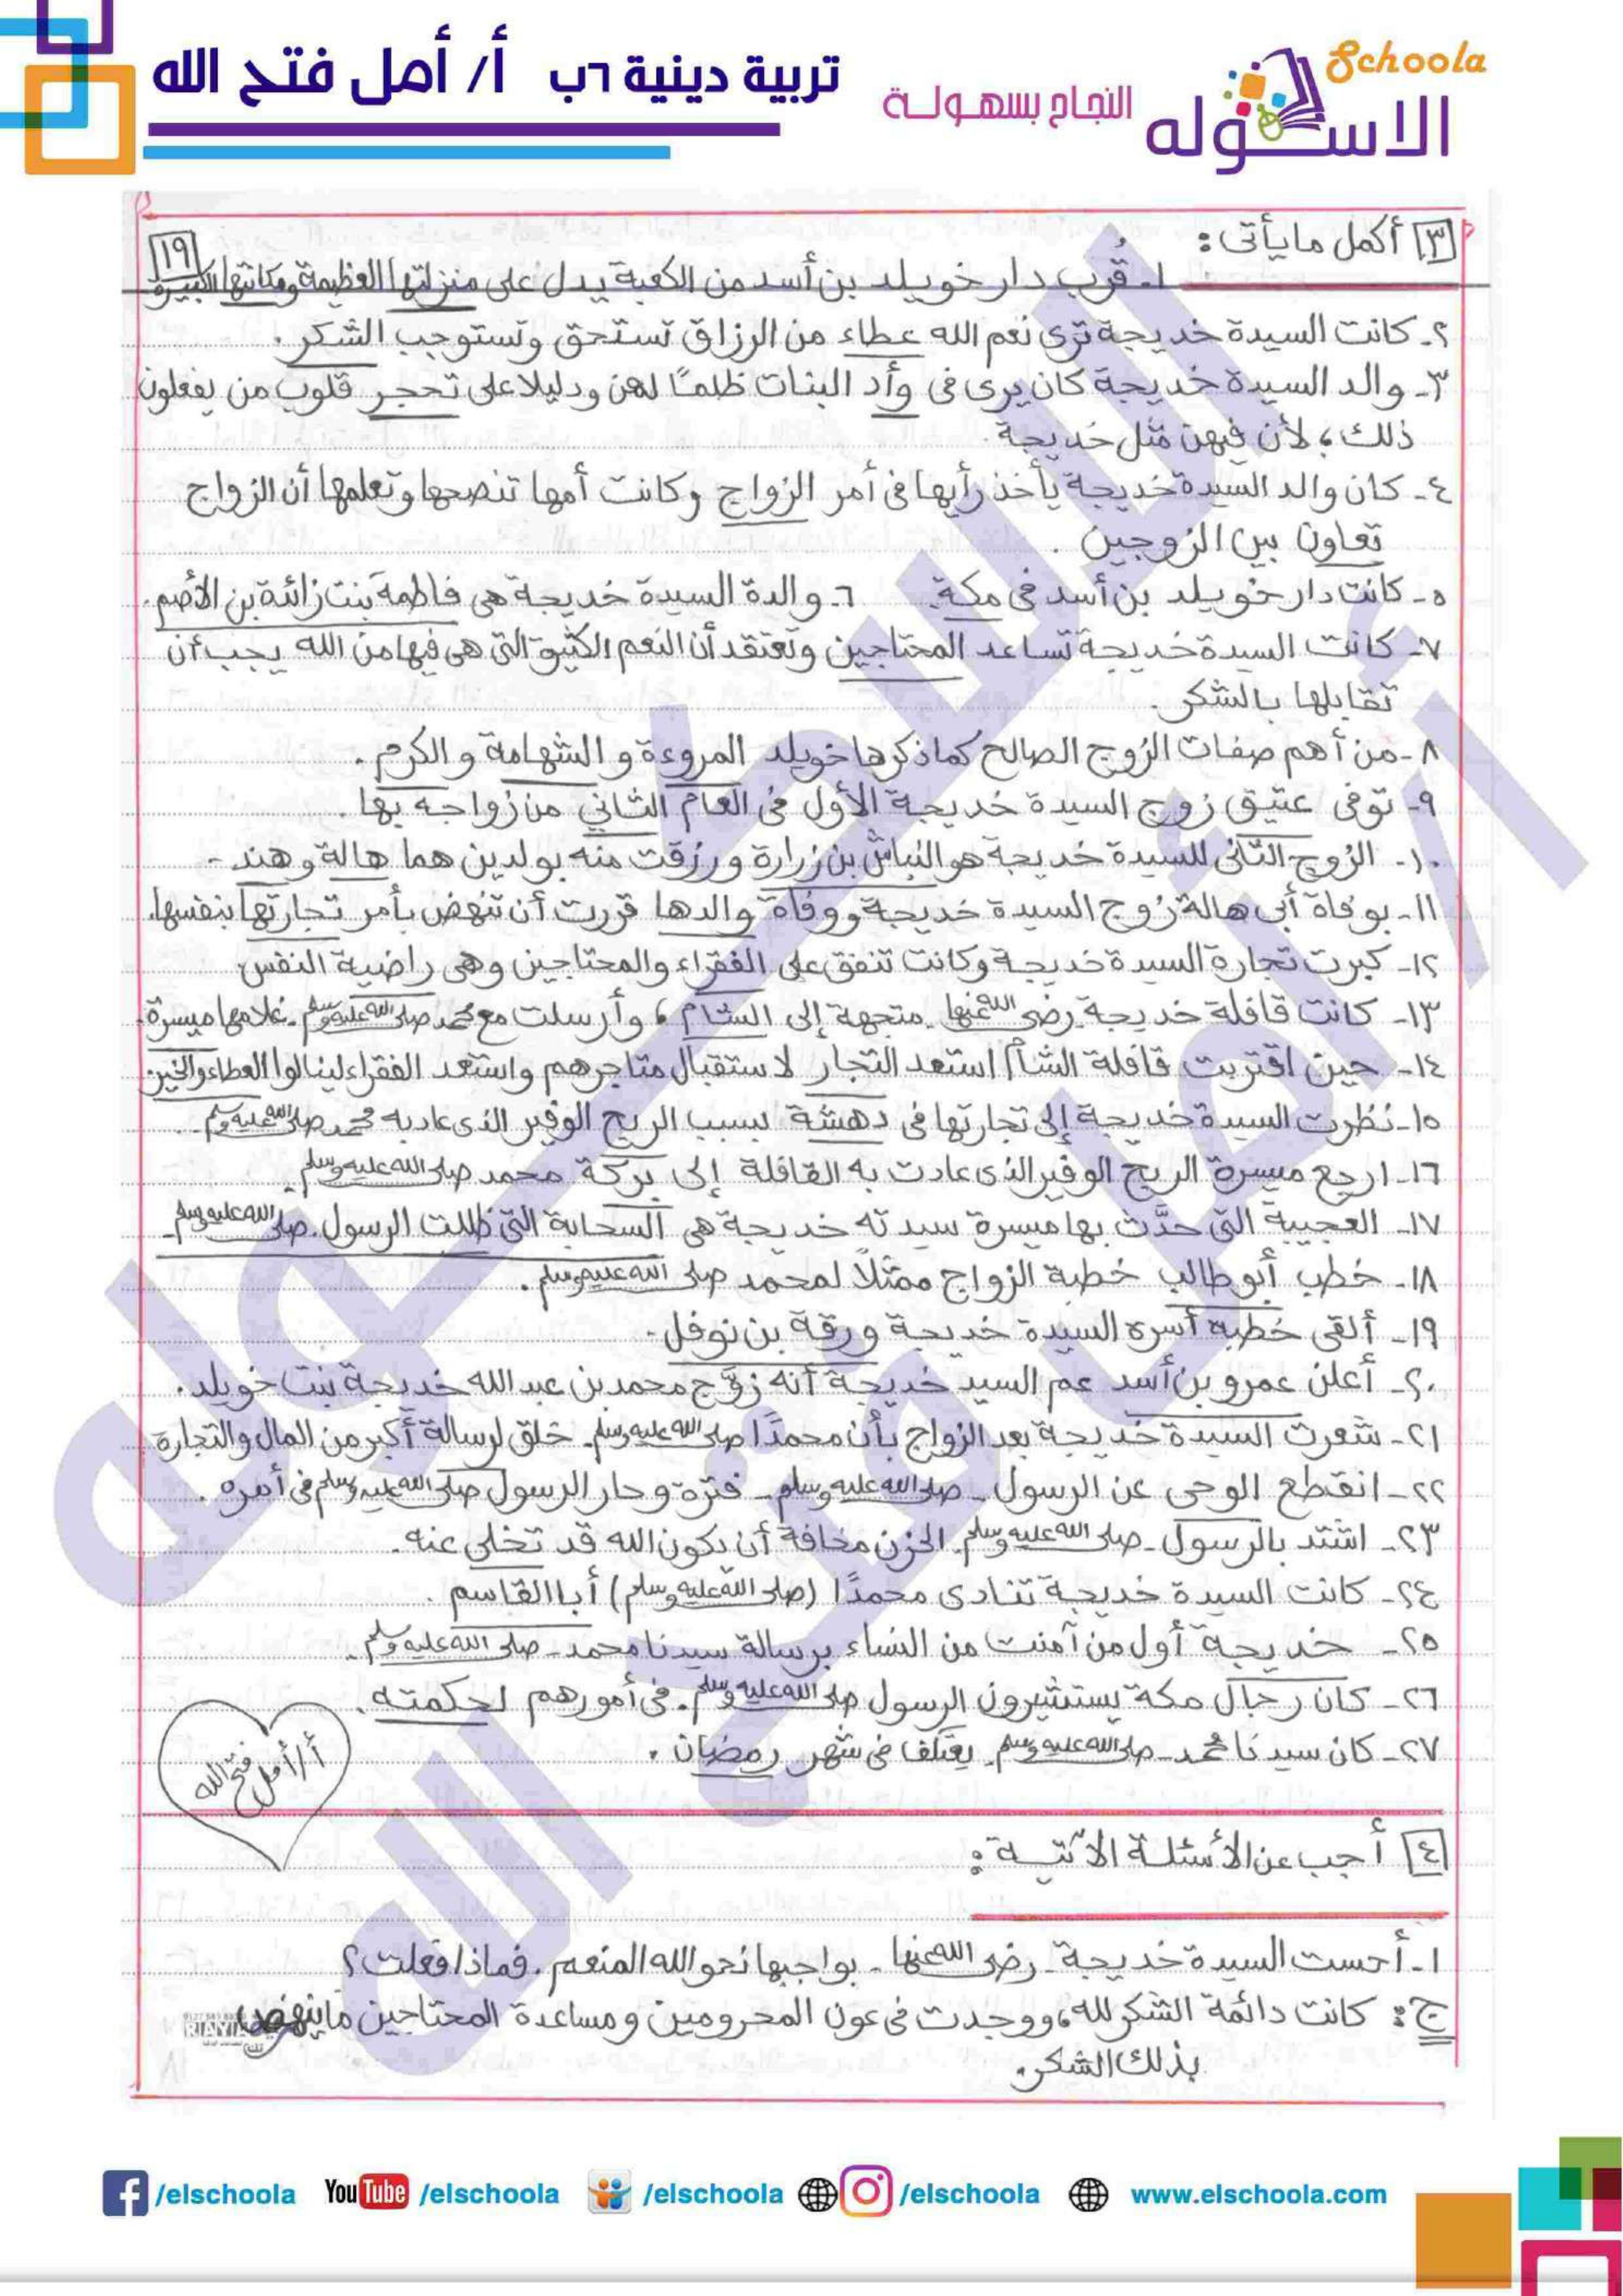 Schoola
الاسكوله
النجاح بسهولة
تربية دينية ٦ب أ/ أمل فتح الله
١٩
٣ أكمل ما يأتى :
١- قرب دار خويلد بن أسد من الكعبة يدل على منزلتها العظيمة ومكانتها الكبيرة
٢- كانت السيدة خديجة ترى نعم الله عطاء من الرزاق تستحق وتستوجب الشكر .
٣- والد السيدة خديجة كان يرى فى وأد البنات ظلمًا لهن ودليلا على تحجر قلوب من يفعلون
ذلك ؛ لأن فيهن مثل خديجة .
٤- كان والد السيدة خديجة يأخذ رأيها فى أمر الزواج وكانت أمها تنصحها وتعلمها أن الزواج
تعاون بين الزوجين .
٥- كانت دار خويلد بن أسد فى مكة . ٦- والدة السيدة خديجة هى فاطمة بنت زائدة بن الأصم .
٧- كانت السيدة خديجة تساعد المحتاجين وتعتقد أن النعم الكثيرة التى هى فيها من الله يجب أن
تقابلها بالشكر .
٨- من أهم صفات الزوج الصالح كما ذكرها خويلد المروءة و الشهامة و الكرم .
٩- توفى عتيق زوج السيدة خديجة الأول فى العام الثاني من زواجه بها .
١٠- الزوج الثانى للسيدة خديجة هو النباش بن زرارة ورزقت منه بولدين هما هالة و هند .
١١- بوفاة أبى هالة زوج السيدة خديجة ووفاة والدها قررت أن تنهض بأمر تجارتها بنفسها .
١٢- كبرت تجارة السيدة خديجة وكانت تنفق على الفقراء والمحتاجين وهى راضية النفس
١٣- كانت قافلة خديجة - رضى الله عنها - متجهة إلى الشام ، وأرسلت مع محمد صلى الله عليه وسلم - غلامها ميسرة .
١٤- حين اقتربت قافلة الشام استعد التجار لاستقبال متاجرهم واستعد الفقراء لينالوا العطاء والخير .
١٥- نظرت السيدة خديجة إلى تجارتها فى دهشة بسبب الربح الوفير الذى عاد به محمد صلى الله عليه وسلم .
١٦- ارجع ميسرة الربح الوفير الذى عادت به القافلة إلى بركة محمد صلى الله عليه وسلم .
١٧- العجيبة التى حدَّث بها ميسرة سيدته خديجة هى السحابة التى ظللت الرسول - صلى الله عليه وسلم -
١٨- خطب أبو طالب خطبة الزواج ممثلاً لمحمد صلى الله عليه وسلم .
١٩- ألقى خطبة أسرة السيدة خديجة ورقة بن نوفل .
٢٠- أعلن عمرو بن أسد عم السيد خديجة أنه زوَّج محمد بن عبد الله خديجة بنت خويلد .
٢١- شعرت السيدة خديجة بعد الزواج بأن محمدًا صلى الله عليه وسلم - خلق لرسالة أكبر من المال والتجارة
٢٢- انقطع الوحى عن الرسول - صلى الله عليه وسلم - فترة وحار الرسول صلى الله عليه وسلم فى أمره .
٢٣- اشتد بالرسول - صلى الله عليه وسلم - الحزن مخافة أن يكون الله قد تخلى عنه .
٢٤- كانت السيدة خديجة تنادى محمدًا (صلى الله عليه وسلم) أبا القاسم .
٢٥- خديجة أول من آمنت من النساء برسالة سيدنا محمد - صلى الله عليه وسلم .
٢٦- كان رجال مكة يستشيرون الرسول صلى الله عليه وسلم - فى أمورهم لحكمته .
٢٧- كان سيدنا محمد - صلى الله عليه وسلم - يعتكف فى شهر رمضان .
أ/ أمل فتح الله
٤ أجب عن الأسئلة الآتية :
١- أحست السيدة خديجة - رضى الله عنها - بواجبها نحو الله المنعم . فماذا فعلت ؟
ج : كانت دائمة الشكر لله ، ووجدت فى عون المحرومين ومساعدة المحتاجين ما ينهض
بذلك الشكر .
الاسكوله
أ/ أمل فتح الله
/elschoola YouTube /elschoola /elschoola /elschoola www.elschoola.com